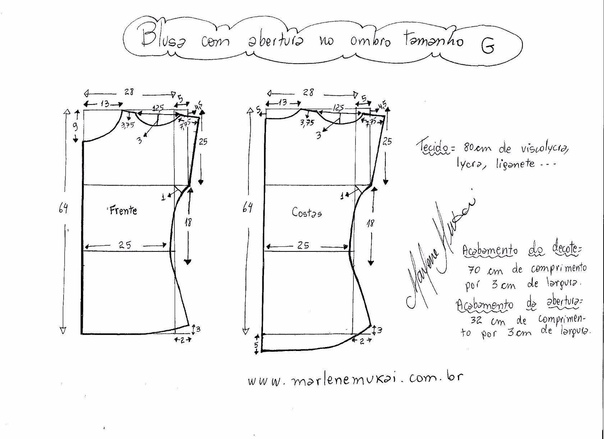 Blusa com abertura no ombro tamanho G
28
5
4,5
13
12,5
9
3,75
3
7,75
25
64
1
Frente
18
25
3
2
28
5
4,5
5
13
12,5
3,75
3
7,75
25
64
1
Costas
18
25
3
2
5
Tecido= 80cm de viscolycra,
lycra, liganete ...
Marlene Mukai
Acabamento do decote=
70 cm de comprimento
por 3 cm de largura.
Acabamento da abertura=
32 cm de comprimen-
to por 3 cm de largura.
www.marlenemukai.com.br